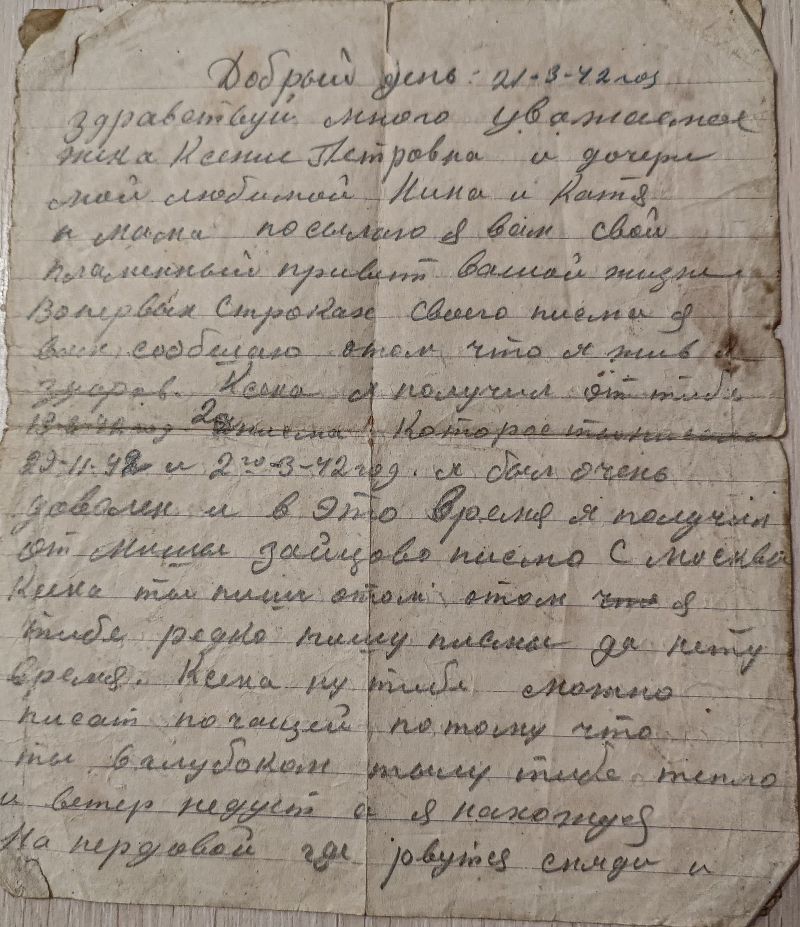 Добрый день: 21-3-42 год
здравствуй много уважаемая
жена Ксения Петровна и дочери
мои любимой Нина и Катя
и мама посылаю я вам свой
пламенный привет вашой жизни
Вопервых Строках своего писма я
вам сообщаю отом что я жив и
здоров. Ксена я получил от тибе
2а писма Которое ты писала
29-11-42 и 2го-3-42 год. я был очень
доволен и в Это Время я получил
от Миши зайцово писмо С москвы
Ксена ты пиши отом отом что я
тибе редко пишу писмы да нету
Время. Ксена ну тибе можно
писат почащей потому что
ты в глубоком тылу тибе тепло
и ветер недует а я нахожуся
На пердовой где рвутся сняди и